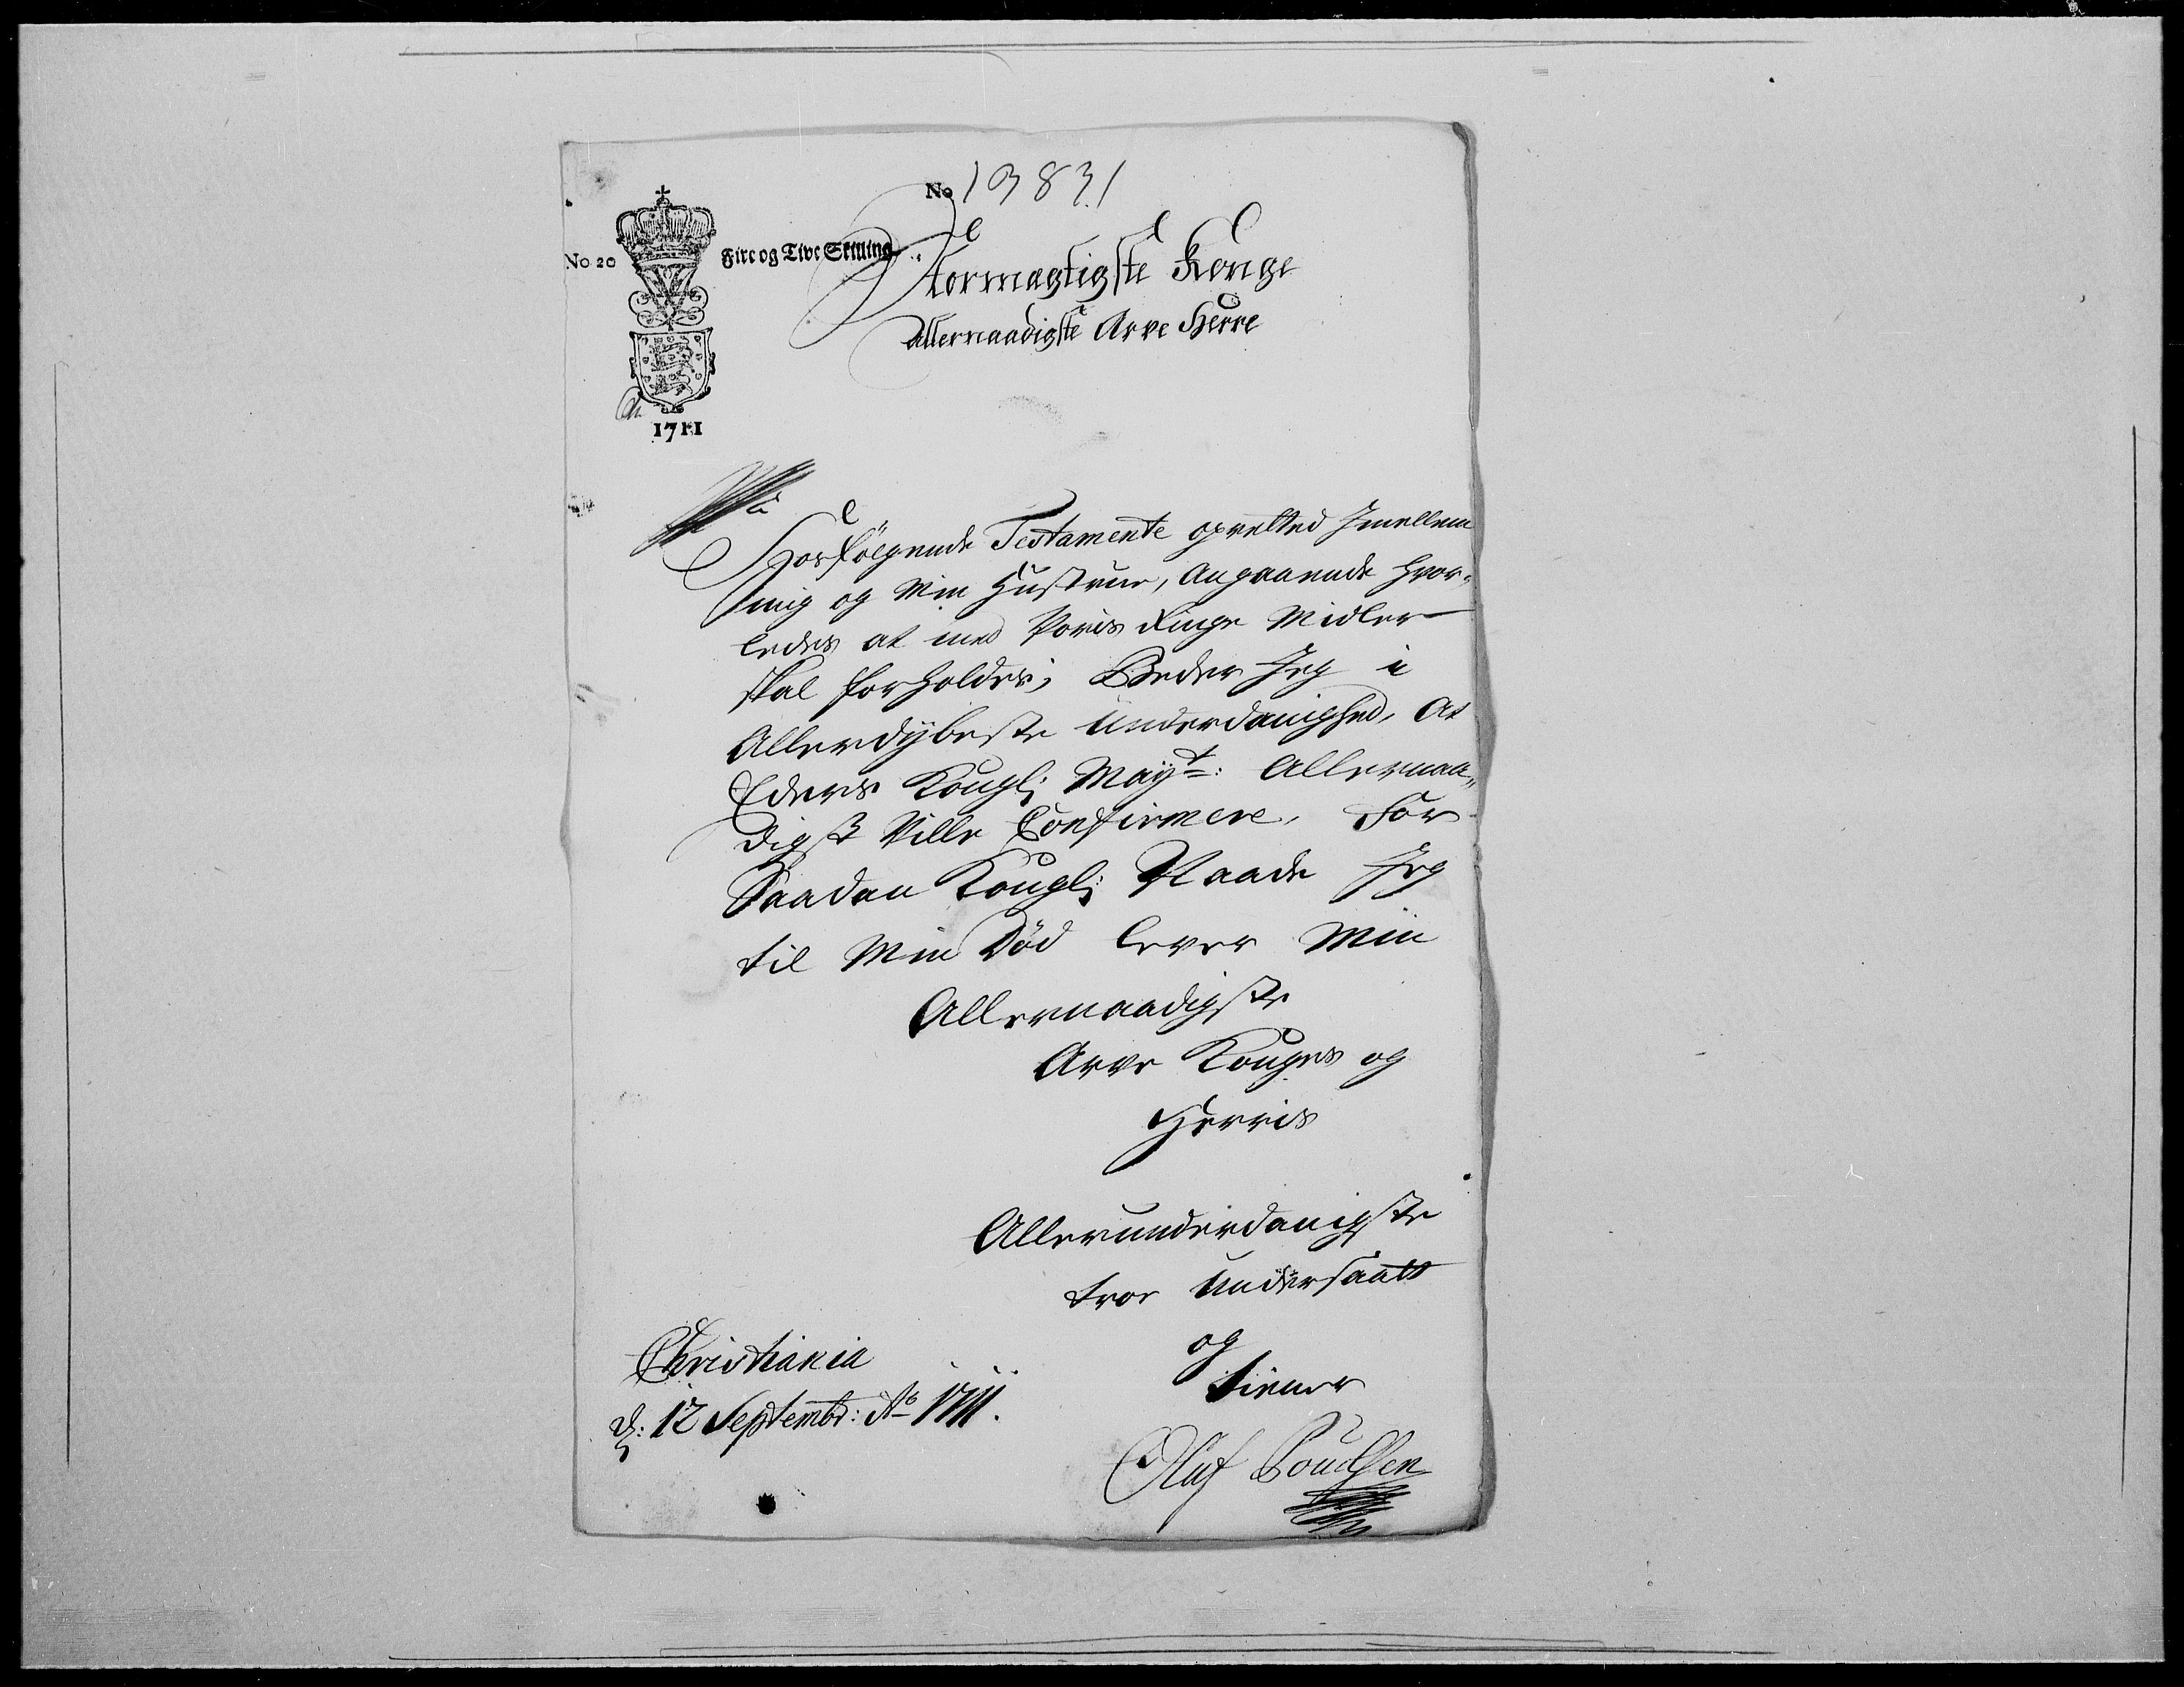 No 19831
No 20
Fire og Tive Skilling
Stormægtigste Konge
Allernaadigste Arve Herre
1711
Hosfölgende Testamente opretted Imellem
mig og Min Hustrue, Angaaende hvor„
ledes at med Voris Ringe Midler
skal forholdes; Beder Jeg i
Allerdybeste Underdanighed, At
Eders Kongl; Mayt: Allernaa„
digst Ville Confirmere, For
Saadan Kongl; Naade Jeg
til Min Död lever Min
Allernaadigste
Arve Konges og
Herris
Allerunderdanigste
troe Undersaatt
og
tiener
Christiania
d: 12 Septembr: Ao 1711.
Oluf Poulsen